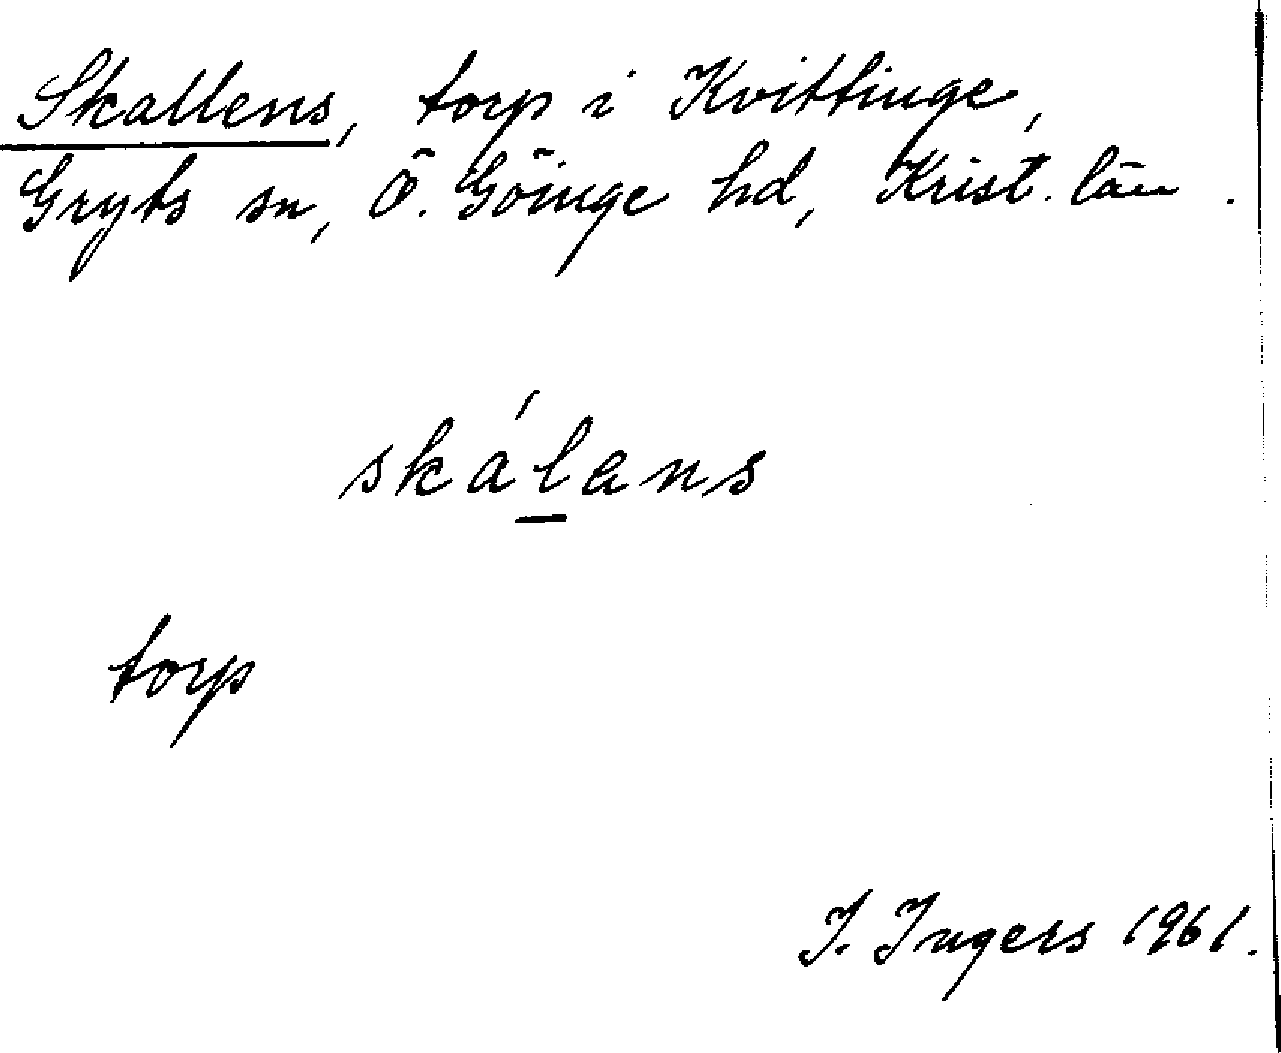 Skallens, torp i Kvittinge,
Gryts sn, Ö. Göinge hd, Krist. län.
skálans
torp
I. Ingers 1961.